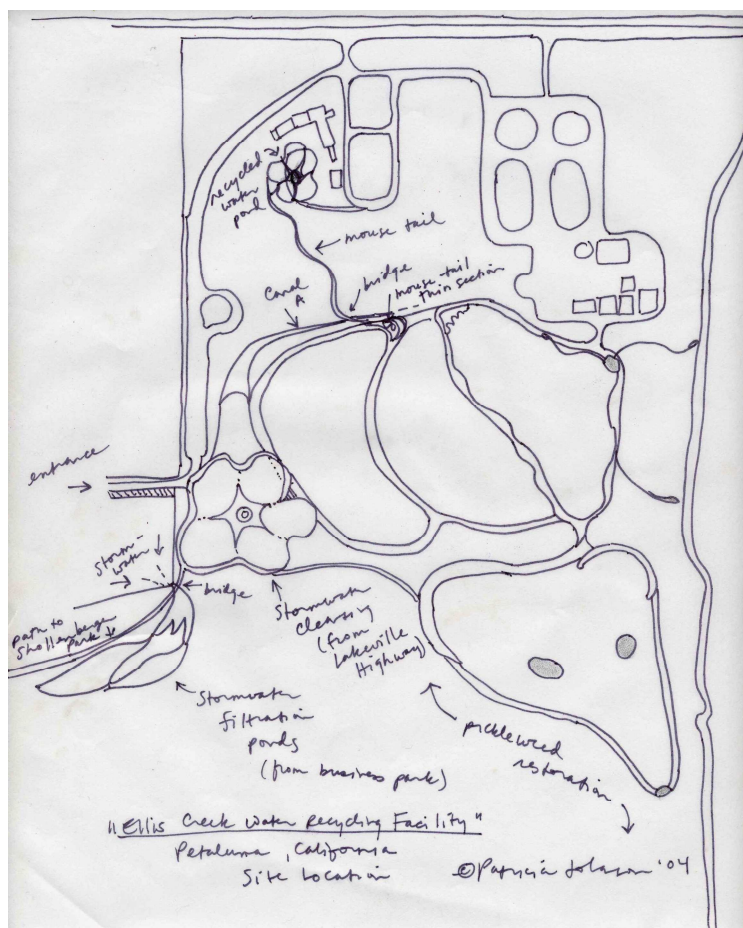 recycled
water
pond
mouse tail
bridge
mouse-tail
thin section
Canal
A
entrance
Storm-
water
bridge
path to
Shollenberger
Park
Stormwater
cleansing
(from
Lakeville
Highway)
Stormwater
filtration
ponds
(from business park)
pickleweed
restoration
"Ellis Creek Water Recycling Facility"
Petaluma, California
Site Location
©Patricia Johanson '04